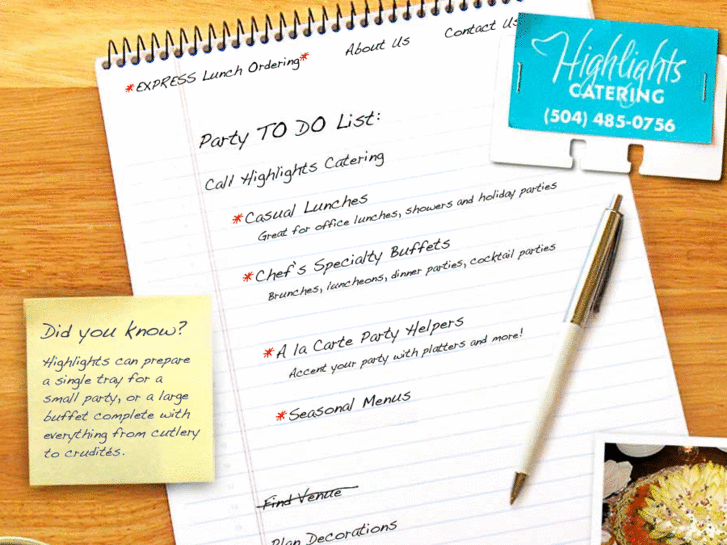 *EXPRESS Lunch Ordering*
About Us
Contact Us
Highlights
CATERING
(504) 485-0756
Party TO DO List:
Call Highlights Catering
*Casual Lunches
Great for office lunches, showers and holiday parties
*Chef's Specialty Buffets
Brunches, luncheons, dinner parties, cocktail parties
*A la Carte Party Helpers
Accent your party with platters and more!
*Seasonal Menus
Did you know?
Highlights can prepare
a single tray for a
small party, or a large
buffet complete with
everything from cutlery
to crudités.
Find Venue
Plan Decorations